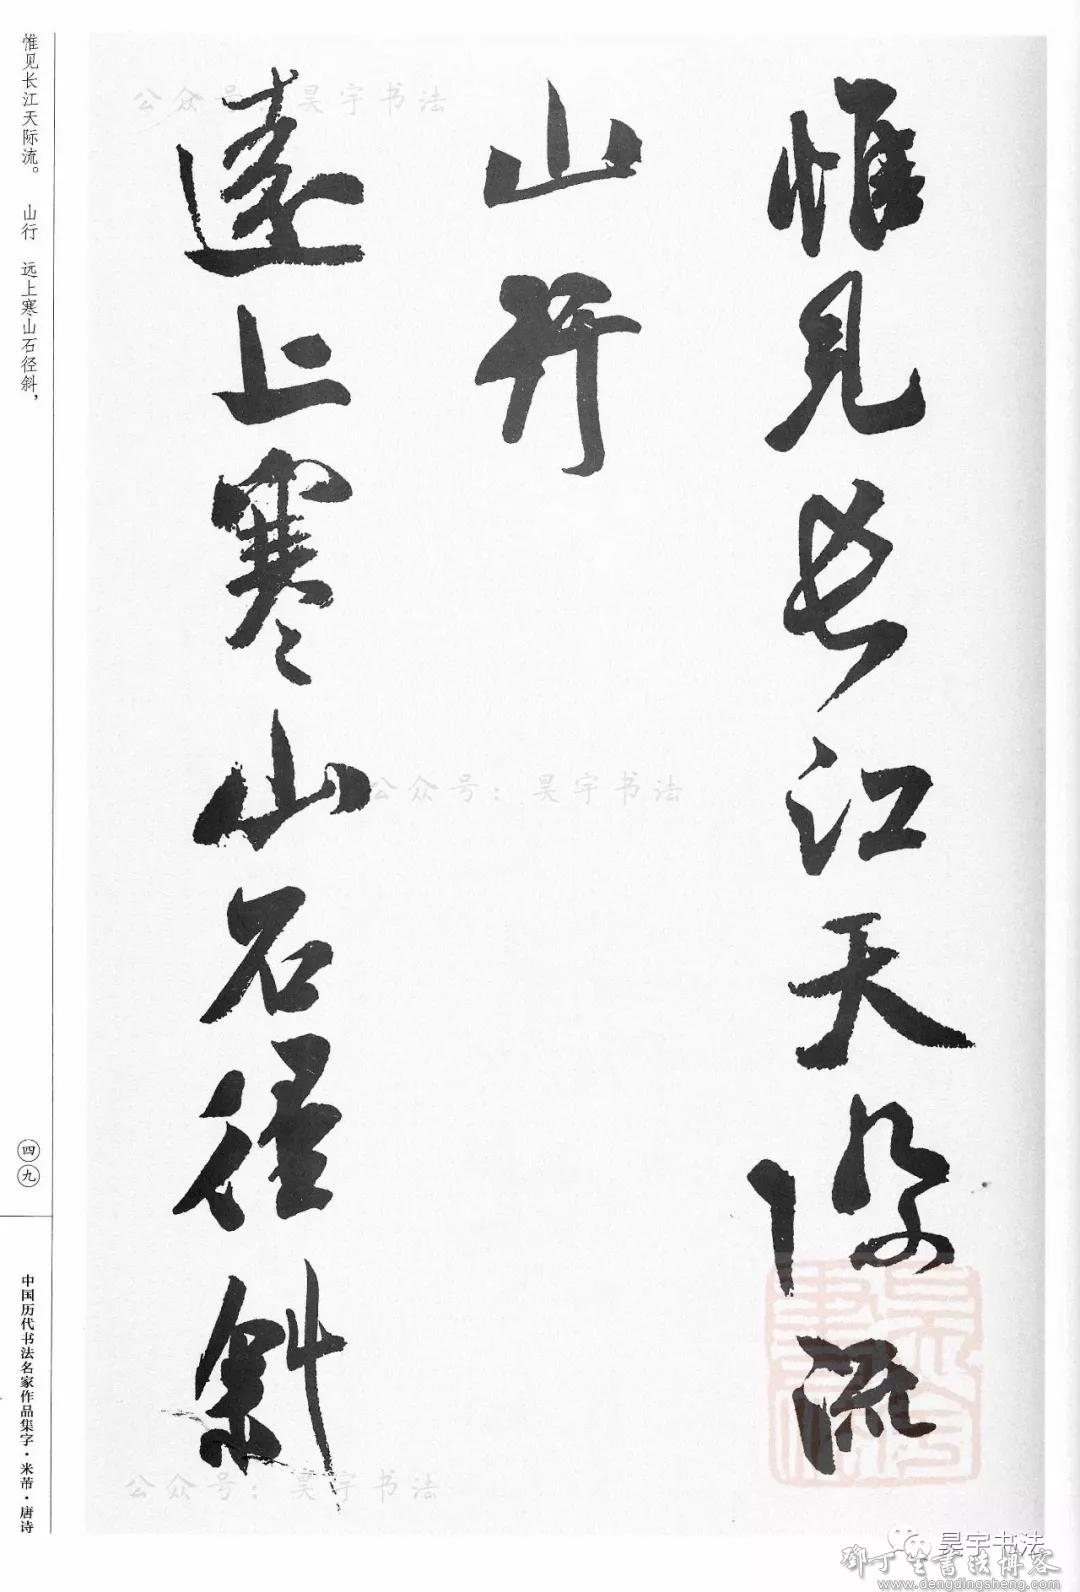 惟見長江天際流
山行
遠上寒山石徑斜
惟见长江天际流。 山行 远上寒山石径斜，
四九
中国历代书法名家作品集字·米芾·唐诗
公众号：昊宇书法
公众号：昊宇书法
公众号：昊宇书法
昊宇书法
邓丁生书法博客
www.dengdingsheng.com